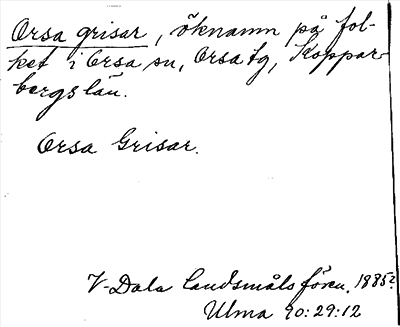 Orsa grisar, öknamn på fol-
ket i Orsa sn, Orsa tg, Koppar-
bergs län.
Orsa Grisar.
V-Dala landsmåls fören. 1885?
Ulma 90:29:12